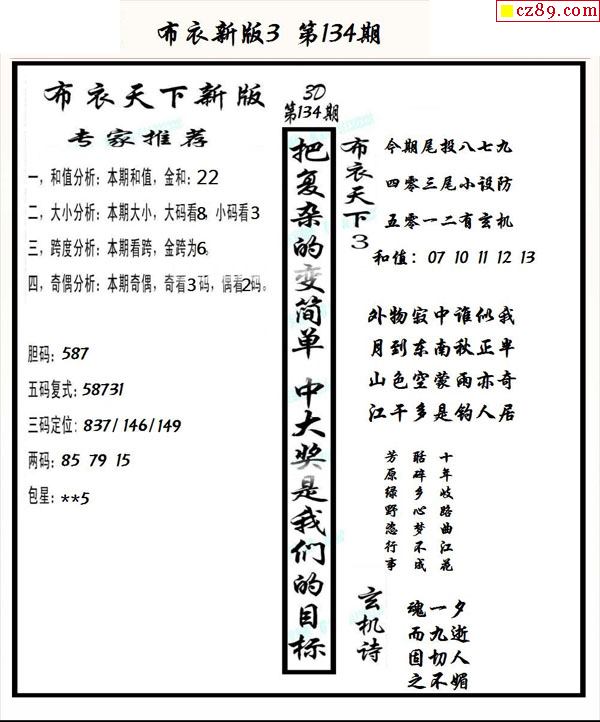 cz89.com
布衣新版3 第134期
布衣天下新版
专家推荐
一，和值分析：本期和值，金和：22
二，大小分析：本期大小，大码看8，小码看3
三，跨度分析：本期看跨，金跨为6。
四，奇偶分析：本期奇偶，奇看3码，偶看2码。
胆码：587
五码复式：58731
三码定位：837/146/149
两码：85 79 15
包星：**5
3D
第134期
把复杂的变简单 中大奖是我们的目标
布衣天下3
今期尾投八七九
四零三尾小设防
五零一二有玄机
和值：07 10 11 12 13
外物寂中谁似我
月到东南秋正半
山色空蒙雨亦奇
江干多是钓人居
十年岐路曲江花
聒碎乡心梦不成
芳原绿野恣行事
玄机诗
魂一夕
而九逝
固切人
之不媚